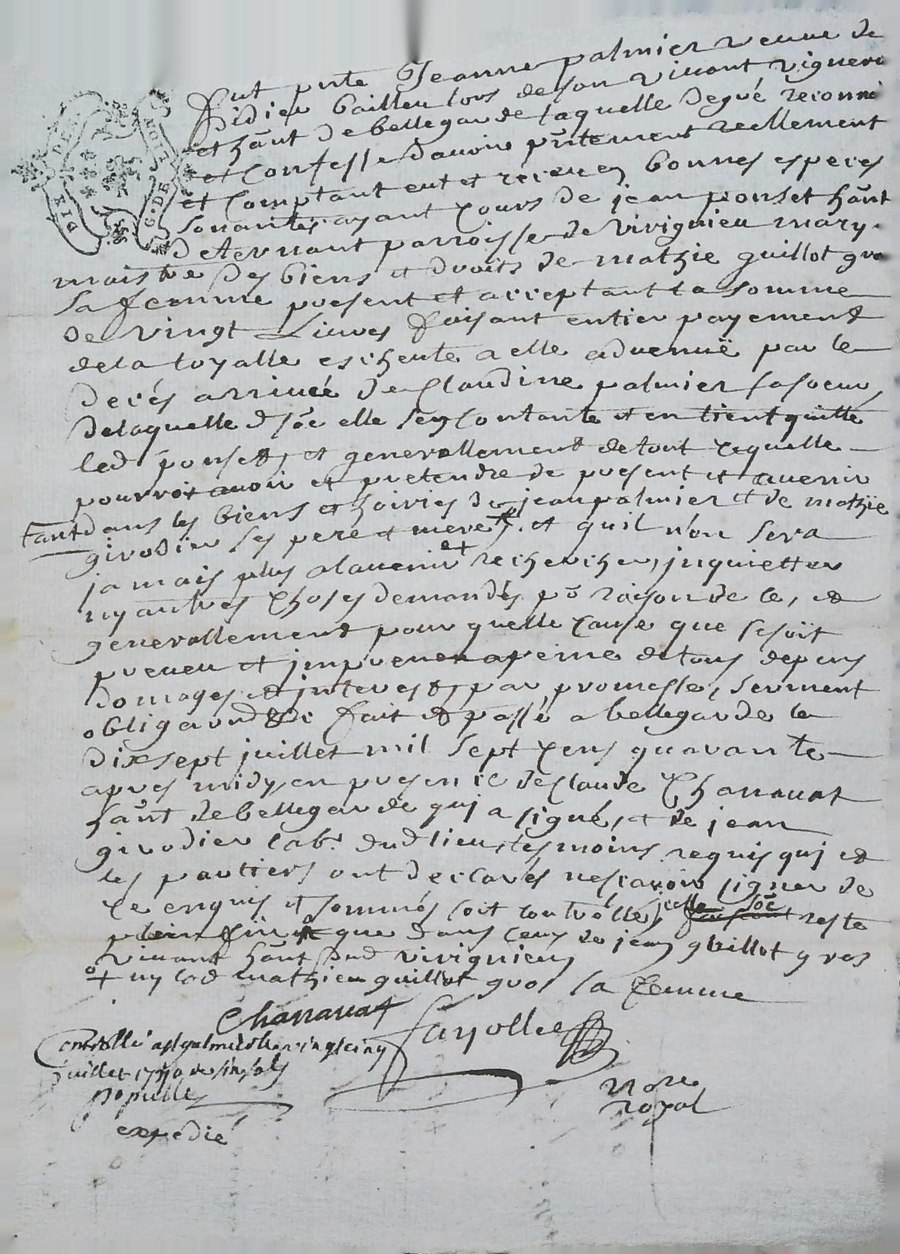 fut pnte Jeanne palmier veuve de
didier bailleu lors de son vivant vigneron
et hãnt de bellegarde laquelle de gré reconnu
et confesse d'avoir pñtement reellement
et comptant eut et receu en bonnes especes
sonantes ayant cours de jean ponset hãnt
de parroisse de Virignieu mary
maistre des biens et droits de mathie guillot gros
sa femme present et acceptant la somme
de vingt Livres faisant entier payement
de la loyalle escheute a elle advenuë par le
decés arrivée de Claudine palmier sa soeur,
de laquelle d sõe elle sen contante et en tient quitte
led ponset, et generallement de tout cequelle
pourroit avoir et pretendre de present et avenir
tant dans les biens et hoiries de jean palmier et de mathie
girodier ses pere et mere et quil n'en sera
jamais plus a lavenir + rechercher, inquietter
ny autres choses demandés põ raison de ce, et
generallement pour quelle cause que se soit
preveu et impreveu a peine de tous depens
domages et interests, par promesse, serment
obligaõn &c fait et passé a bellegarde le
dix sept juillet mil sept cens quarante
apres midy en presence de Claude Chanavat
hãnt de bellegarde qui a signé, et de jean
girodier lab.r dud lieu tesmoins requis qui et
les parties ont declarés ne scavoir signer de
ce enquis et sommés soit controllé, icelle sõe reste
que dans ceux de jean guillot gros
vivant hãnt dud virignieu
+ ny lad mathieu guillot gros sa femme
Chanavat
Fayolle
Controllé a st galmier le vingt cinq
juillet 1740
Nore
royal
expedié